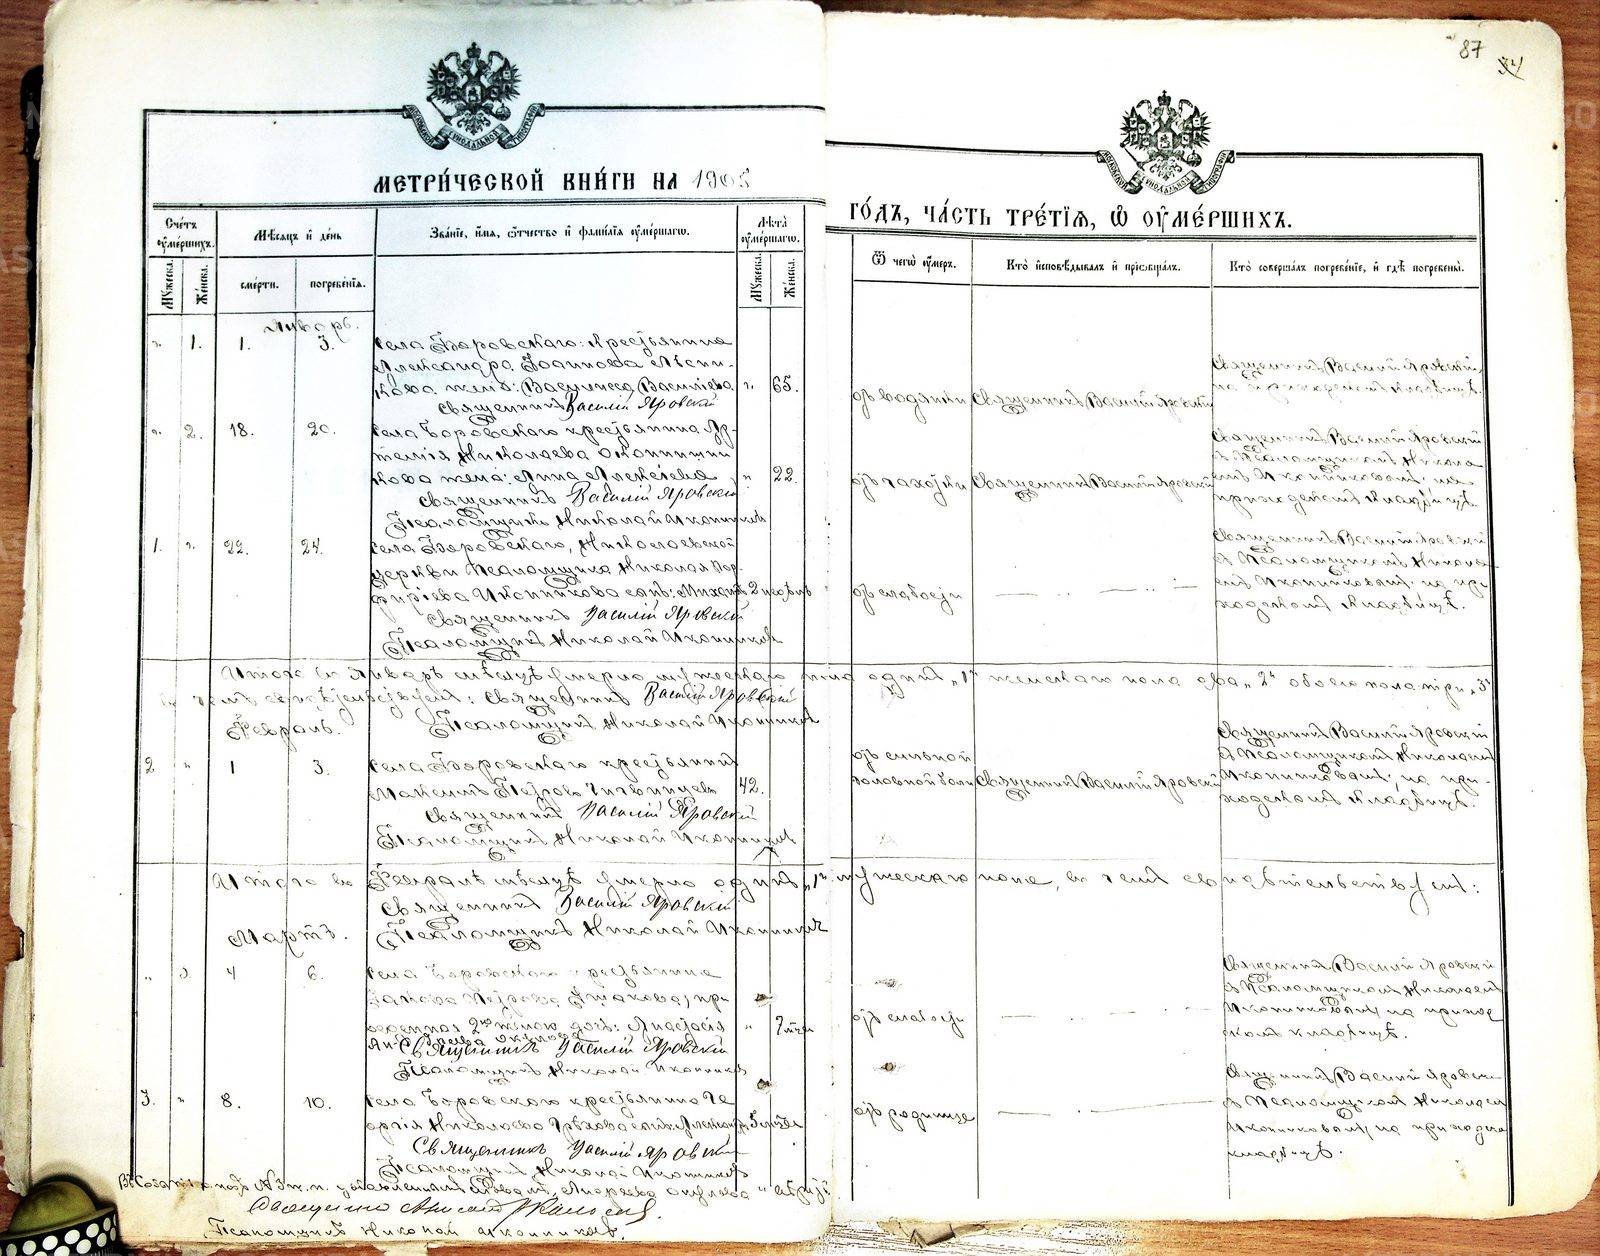 87
МЕТРИ́ЧЕСКОЙ КНИ́ГИ НА 1905
ГО́ДЪ, ЧА́СТЬ ТРЕ́ТІЯ, Ѿ ОУМЕ́РШИХЪ.
Сче́тъ оуме́ршихъ.
Мѣсяцъ и де́нь
Зва́ніе, и́мя, о́тчество и фами́лія оуме́ршаго.
Лѣта̀ оуме́ршаго.
Мꙋ́жеска.
Же́нска.
сме́рти.
погребе́нія.
Мꙋ́жеска.
Же́нска.
Ѿ чегѡ̀ оу́меръ.
Кто̀ исповѣ́дывалъ и пріѡбща́лъ.
Кто̀ соверша́лъ погребе́ніе, и гдѣ̀ погребены̀.
Январь.
" 1. 1. 3. села Боровскаго: крестьянина
Александра Іоаннова Лѣсни-
кова жена: Васимиса Васильева " 65.
Священникъ Василій Яровскій
отъ водянки Священникъ Василій Яровскій
Священникъ Василій Яровскій
на приходскомъ кладбищѣ.
" 2. 18. 20. села Боровскаго крестьянина Ар-
темія Николаева
кова жена: Анна Алексѣева " 22.
Священникъ Василій Яровскій
Псаломщикъ Николай Иконниковъ
отъ чахотки Священникъ Василій Яровскій
Священникъ Василій Яровскій
съ Псаломщикомъ Никола-
емъ Иконниковымъ на
приходскомъ кладбищѣ.
1. " 22. 24. села Боровскаго, Николаевской
церкви Псаломщика Николая Пор-
фиріева Иконникова сынъ: Михаилъ 2 недѣль
Священникъ Василій Яровскій
Псаломщикъ Николай Иконниковъ
отъ слабости
Священникъ Василій Яровскій
съ Псаломщикомъ Никола-
емъ Иконниковымъ на при-
ходскомъ кладбищѣ.
Итого въ Январѣ мѣсяцѣ умерло мужескаго пола одинъ „1" женскаго пола два „2" обоего пола три „3"
въ чемъ свидѣтельствуемъ: Священникъ Василій Яровскій
Псаломщикъ Николай Иконниковъ
Февраль.
2 " 1 3. села Боровскаго крестьянинъ
Максимъ Петровъ 42.
Священникъ Василій Яровскій
Псаломщикъ Николай Иконниковъ
отъ сильной
головной боли Священникъ Василій Яровскій
Священникъ Василій Яровскій
съ Псаломщикомъ Николаемъ
Иконниковымъ на при-
ходскомъ кладбищѣ.
Итого въ Февралѣ мѣсяцѣ умерло одинъ „1" мужескаго пола, въ чемъ свидѣтельствуемъ:
Священникъ Василій Яровскій
Псаломщикъ Николай Иконниковъ
Мартъ.
" 3. 4 6. села Боровскаго крестьянина
Іакова Петрова при-
веденная 2ю женою дочь: Анастасія " 7
Священникъ Василій Яровскій
Псаломщикъ Николай Иконниковъ
отъ слабости
Священникъ Василій Яровскій
съ Псаломщикомъ Николаемъ
Иконниковымъ на приход-
скомъ кладбищѣ.
3. " 8. 10. села Боровскаго крестьянина Ге-
оргія Николаева сынъ: 5
Священникъ Василій Яровскій
Псаломщикъ Николай Иконниковъ
отъ родимца
Священникъ Василій Яровскій
съ Псаломщикомъ Николаемъ
Иконниковымъ на приходскомъ
кладбищѣ.
Священникъ
Псаломщикъ Николай Иконниковъ.